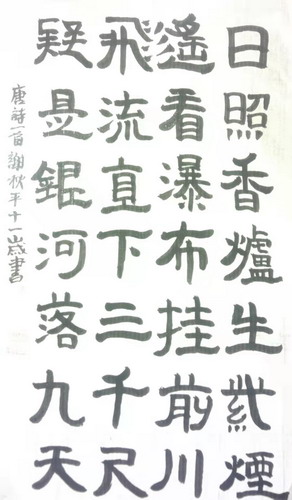 日照香爐生紫煙
遙看瀑布挂前川
飛流直下三千尺
疑是銀河落九天
唐詩一首 謝秋平十一歲書